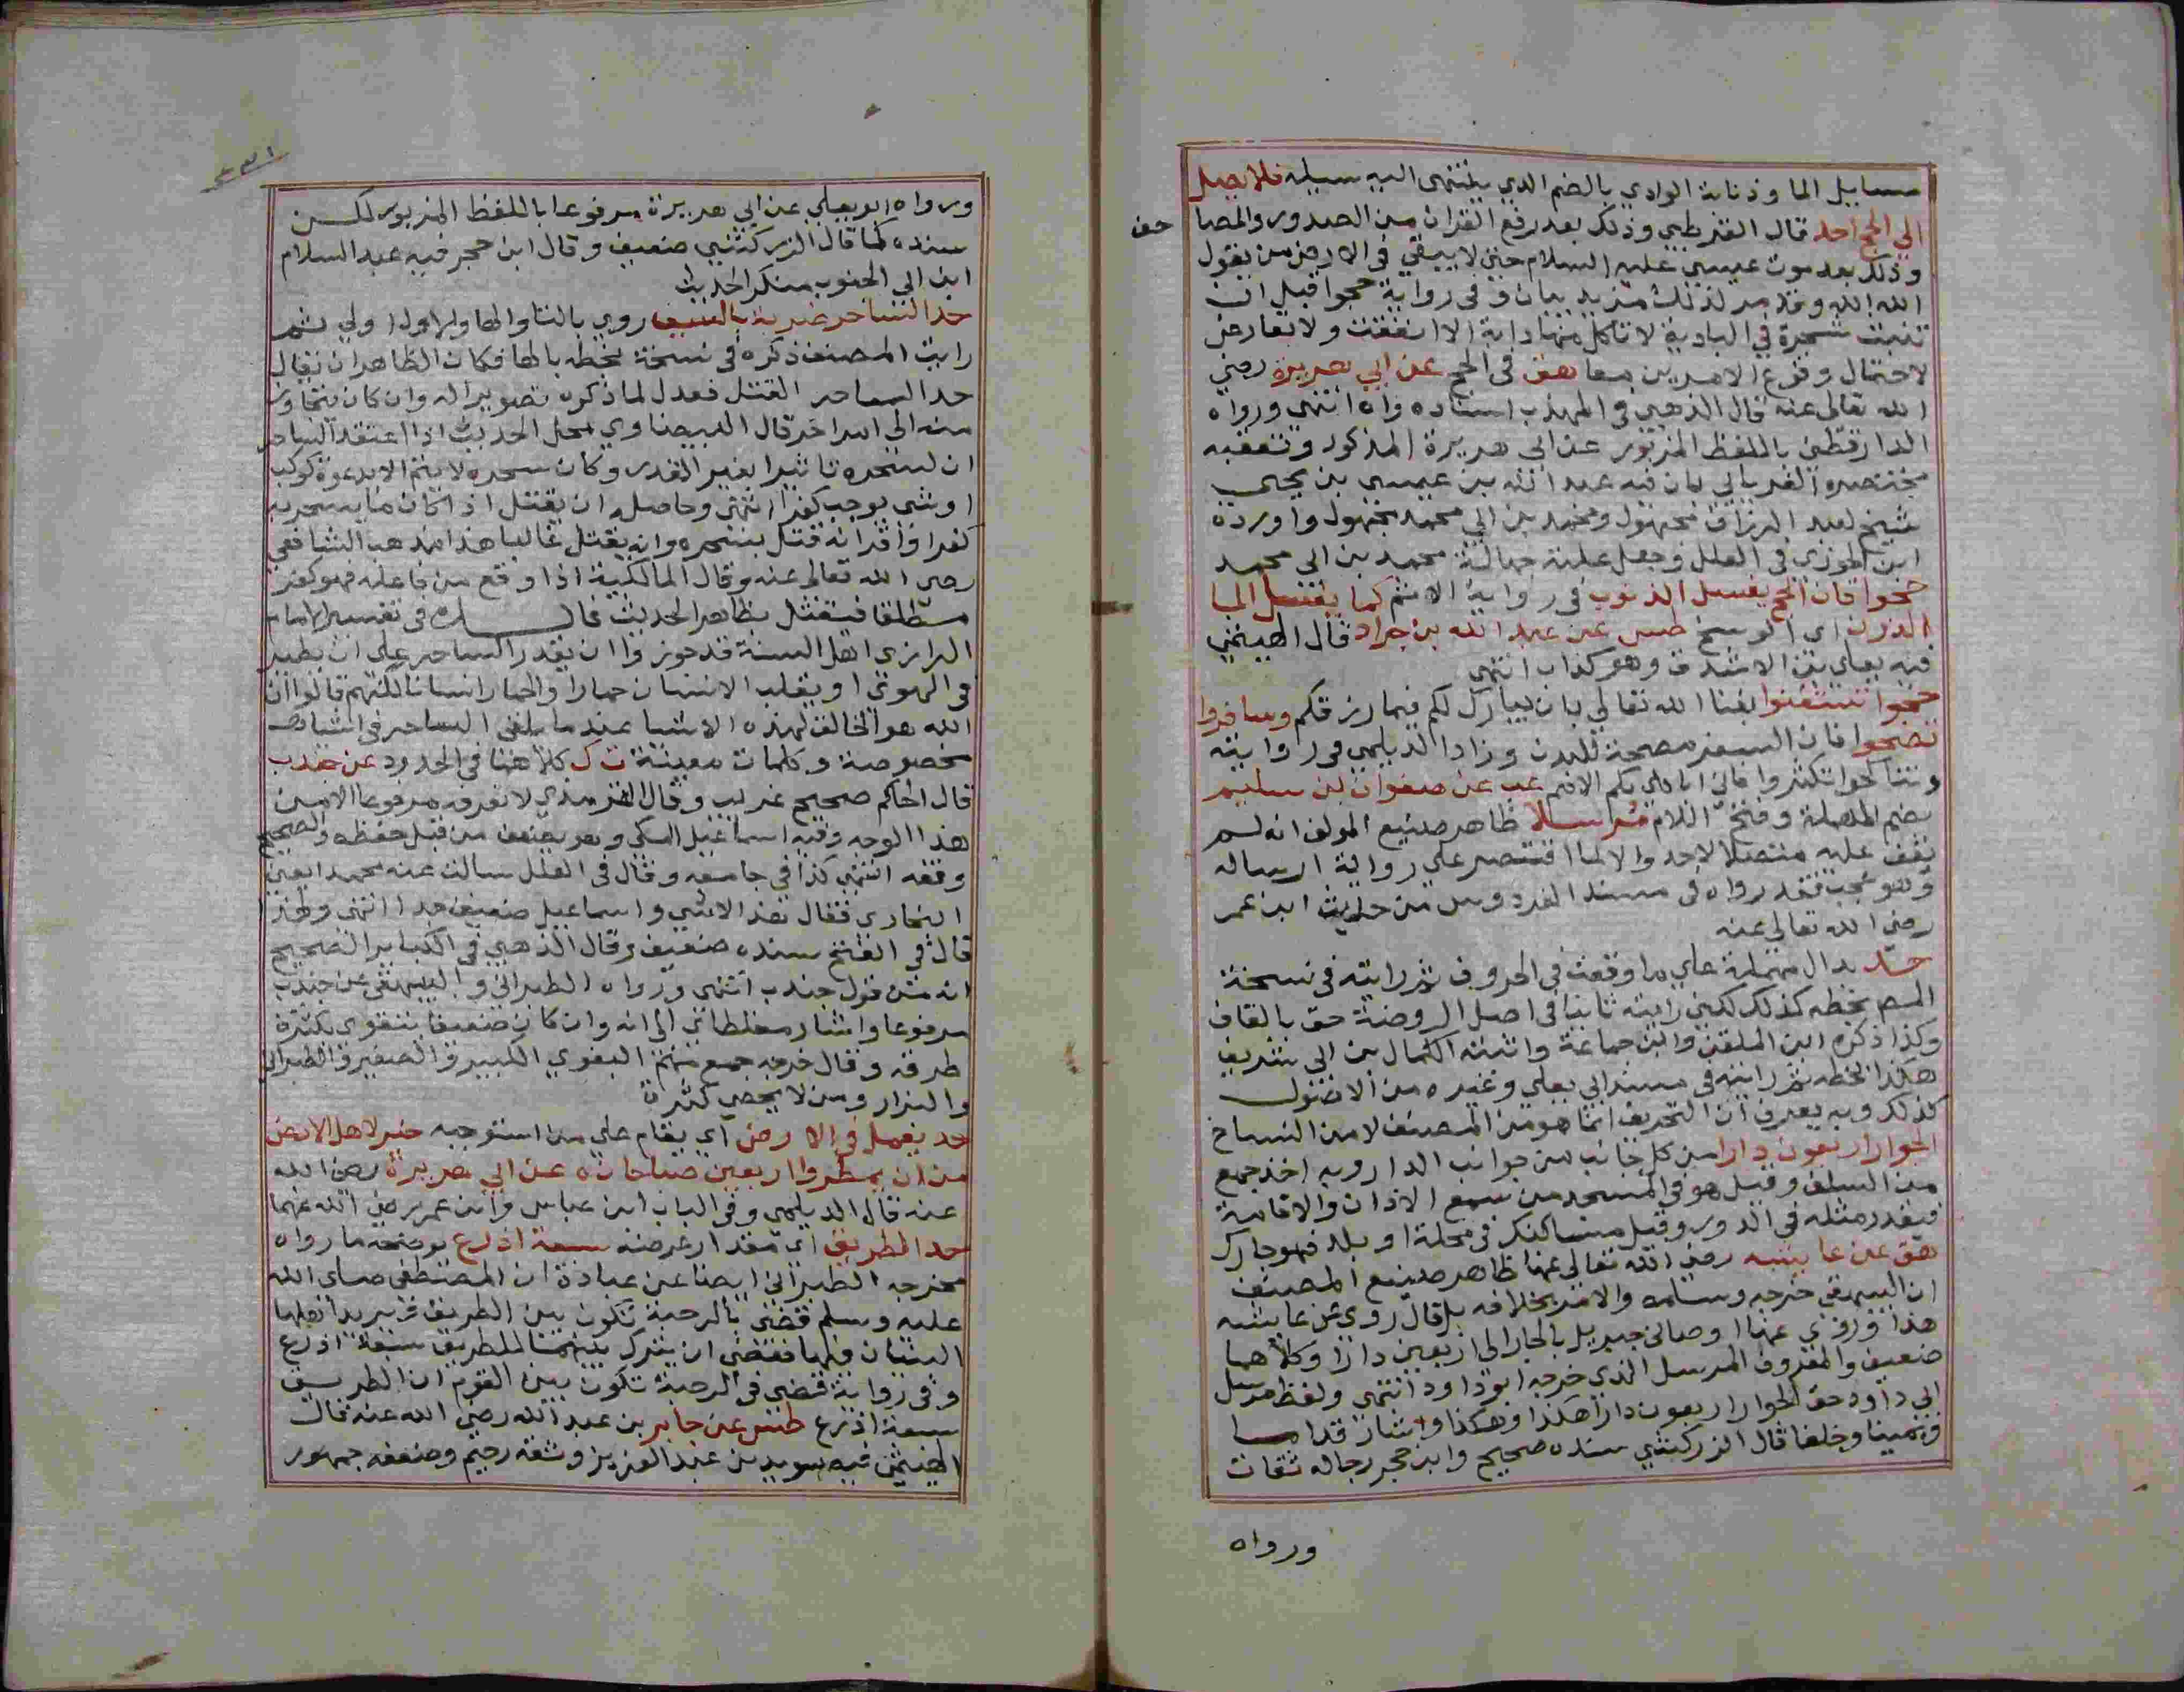 مسايل الما وذنابة الوادي بالضم الذي ينتهى اليه سيله فلا يصل
الي الحج احد قال القرطبي وذلك بعد رفع القران من الصدور والمصا
حف
وذلك بعد موت عيسي عليه السلام حين لا يبقي في الارض من يقول
الله الله وقد مر لذلك مزيد بيان وفي رواية حجوا قبل ان
تنبت شجرة في البادية لا تاكل منها دابة الا نفقت ولا تعارض
لاحتمال وقوع الامرين معا هق في الحج عن ابي هريرة رضي
الله تعالى عنه قال الذهبي في المهذب اسناده واه انتهى ورواه
الدارقطني باللفظ المزبور عن ابى هريرة المذكور وتعقبه
مختصره الغرياني بان فيه عبد الله بن عيسي بن يحيي
شيخ لعبد الرزاق مجهول ومحمد بن ابي محمد مجهول واورده
ابن الجوزي في العلل وجعل علته جهالة محمد بن ابى محمد
حجوا فان الحج يغسل الذنوب في رواية الاثم كما يغسل الما
الدرن اي الوسخ طس عن عبد الله بن جراد قال الهيثمي
فيه يعلي بن الاشدق وهو كذاب انتهى
حجوا تستغنوا بغنا الله تعالي بان يبارك لكم فيما رزقكم وسافروا
تصحوا فان السفر مصحة للبدن وزاد الديلمي في روايته
وتناكحوا تكثروا فاني اباهي بكم الامم عب عن صفوان بن سليم
بضم المهملة وفتح اللام مرسلا ظاهر صنيع المولف انه لم
يقف عليه متصلا لاحد والا لما اقتصر علي رواية ارساله
وهو عجب فقد رواه في مسند الفردوس من حديث ابن عمر
رضي الله تعالى عنه
حد بدال مهملة علي ما وقعت في الحروف ثم رايته في نسخة
المص بخطه كذلك لكني رايته ثابتا في اصل الروضة حق بالقاف
وكذا ذكره ابن الملقن وابن جماعة واثبته الكمال بن ابي شريف
هكذا بخطه ثم رايته في مسند ابي يعلي وغيره من الاصول
كذلك وبه يعرف ان التحريف انما هو من المصنف لا من النساخ
الجوار اربعون دارا من كل جانب من جوانب الدار وبه اخذ جمع
من السلف وقيل هو في المسجد من سمع الاذان والاقامة
فيقدر مثله في الدور وقيل من ساكنك في محلة او بلد فهو جارك
هق عن عايشه رضي الله تعالى عنها ظاهر صنيع المصنف
ان البيهقي خرجه وسلمه والامر بخلافه بل قال روي عن عايشه
هذا وروي عنها اوصاني جبريل بالجار الى اربعين دارا وكلاهما
ضعيف والمعروف المرسل الذي خرجه ابو داود انتهى ولفظ مرسل
ابي داود حق الجوار اربعون دارا هكذا وهكذا واشار قداما
ويمينا وخلفا قال الزركشي سنده صحيح وابن حجر رجاله ثقات
ورواه
ورواه ابو يعلي عن ابي هريرة مرفوعا باللفظ المزبور لكن
سنده كما قال الزركشي ضعيف وقال ابن حجر فيه عبد السلام
ابن ابي الجنوب منكر الحديث
حد الساحر ضربة بالسيف روي بالتا والها والاول اولي ثم
رايت المصنف ذكره في نسخة بخطه بالها فكان الظاهر ان يقال
حد الساحر القتل فعدل لما ذكره تصويرا له وان كان يتجاوز
منه الي امر اخر قال البيضاوي محل الحديث اذا اعتقد الساحر
ان لسحره تاثيرا بغير القدر وكان سحره لا يتم الا بدعوة كوكب
او شي يوجب كفرا انتهى وحاصله ان يقتل اذا كان ما يسحر به
كفرا واقر انه قتل بسحره وانه يقتل غالبا هذا مذهب الشافعي
رضي الله تعالى عنه وقال المالكية اذا وقع من فاعله فهو كفر
مطلقا فيقتل بظاهر الحديث في تفسير الامام
الرازي اهل السنة قد جوزوا ان يقدر الساحر علي ان يطير
في الهوي او يقلب الانسان حمارا والحمار انسانا لكنهم قالوا ان
الله هو الخالق لهذه الاشيا عند ما يلقى الساحر في اشيا
مخصوصة وكلمات معينة ت ك كلاهما في الحدود عن جندب
قال الحاكم صحيح غريب وقال الترمذي لا نعرفه مرفوعا الا من
هذا الوجه وفيه اسماعيل المكي وهو يضعف من قبل حفظه والصحيح
وقفه انتهى كذا في جامعه وقال في العلل سالت عنه محمدا يعني
البخاري فقال هذا لا شي واسماعيل ضعيف جدا انتهى ولهذا
قال في الفتح سنده ضعيف وقال الذهبي في الكباير الصحيح
انه من قول جندب انتهى ورواه الطبراني والبيهقي عن جندب
مرفوعا واشار مغلطاي الي انه وان كان ضعيفا يتقوي بكثرة
طرقه وقال خرجه جمع منهم البغوي الكبير والصغير والطبراني
والبزار ومن لا يحصي كثرة
حد يعمل في الارض اي يقام علي من استوجبه خير لاهل الارض
من ان يمطروا اربعين صباحا ن ه عن ابي هريرة رضي الله
عنه قال الديلمي وفي الباب ابن عباس وابن عمر رضي الله عنهما
حد الطريق اي مقدار عرضه سبعة اذرع يوضحه ما رواه
مخرجه الطبراني ايضا عن عبادة ان المصطفى صلي الله
عليه وسلم قضى بالرحبة تكون بين الطريق ثم يريد اهلها
البنيان فيها فقضى ان يترك بينهما للطريق سبعة اذرع
وفي رواية قضي في الرحبة تكون بين القوم ان الطريق
سبعة اذرع طس عن جابر بن عبد الله رضي الله عنه قال
الهيثمي فيه سويد بن عبد العزيز وثقه دحيم وضعفه جمهور